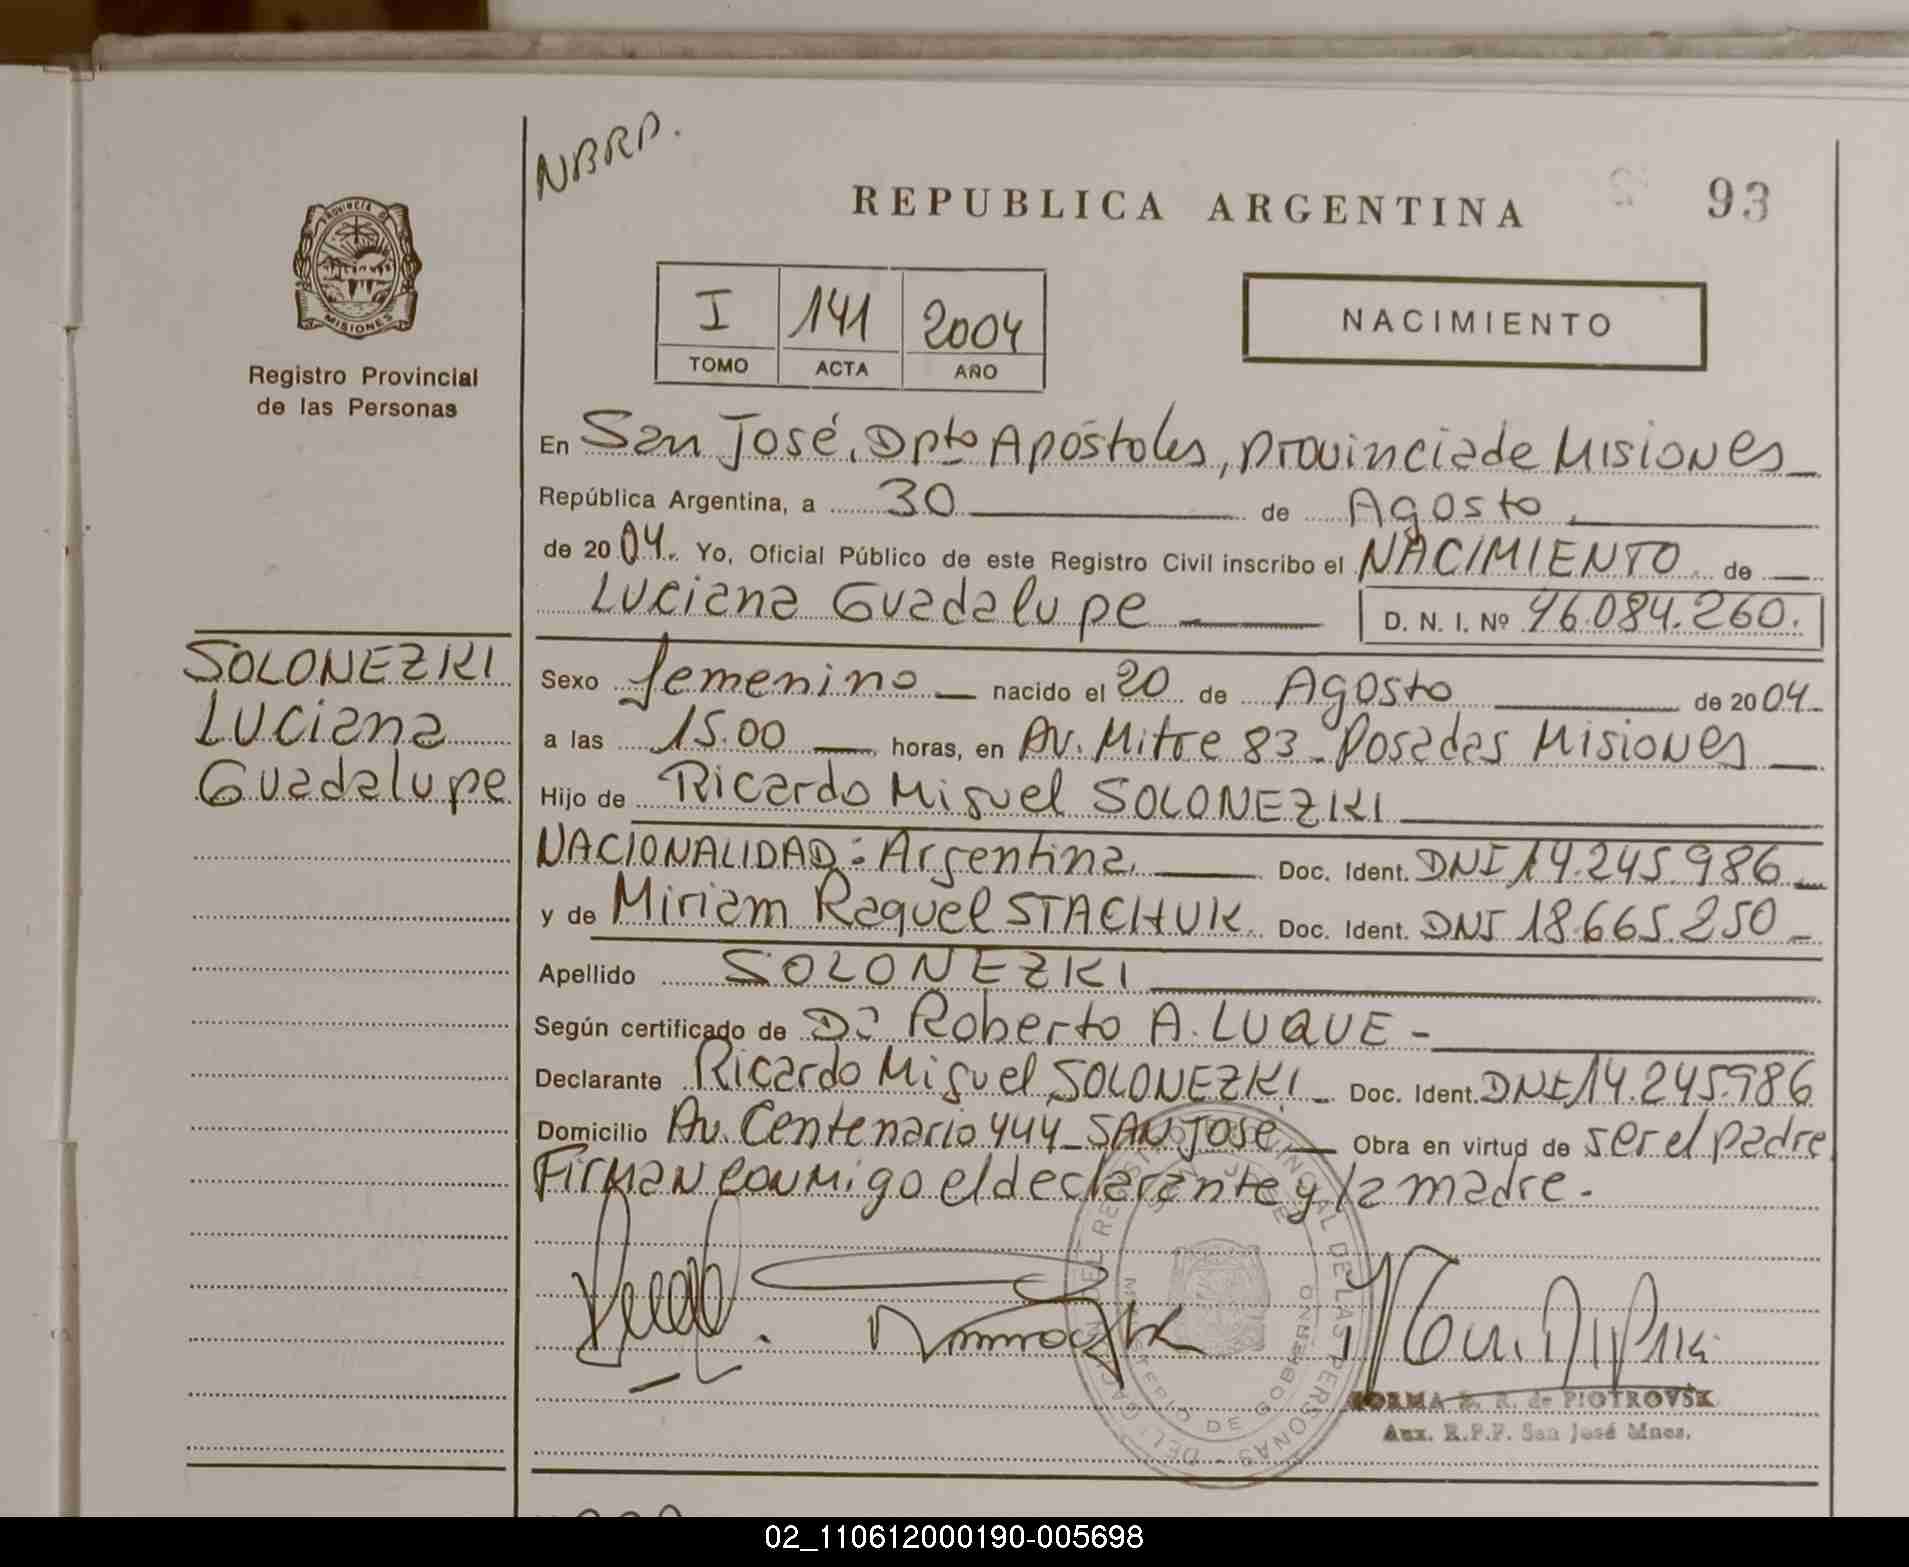 NBRP.
REPUBLICA ARGENTINA
93
PROVINCIA DE
MISIONES
Registro Provincial
de las Personas
I 141 2004
TOMO ACTA AÑO
NACIMIENTO
En San José, Dpto Apóstoles, provincia de Misiones
República Argentina, a 30 de Agosto
de 2004. Yo, Oficial Público de este Registro Civil inscribo el NACIMIENTO de
Luciana Guadalupe D. N. I. Nº 46.084.260.
SOLONEZKI
Luciana
Guadalupe
Sexo femenino nacido el 20 de Agosto de 2004
a las 15.00 horas, en Av. Mitre 83 - Posadas Misiones
Hijo de Ricardo Miguel SOLONEZKI
NACIONALIDAD: Argentina Doc. Ident. DNI 14.245.986
y de Miriam Raquel STACHUK Doc. Ident. DNI 18.665.250
Apellido SOLONEZKI
Según certificado de Dr Roberto A. LUQUE -
Declarante Ricardo Miguel SOLONEZKI Doc. Ident. DNI 14.245.986
Domicilio Av. Centenario 444 - SAN JOSE Obra en virtud de ser el padre
Firman conmigo el declarante y la madre.
DEL REGISTRO PROVINCIAL DE LAS PERSONAS
MINISTERIO DE GOBIERNO
NORMA B. R. de PIOTROVSK
Aux. R.P.P. San José Mnes.
02_110612000190-005698